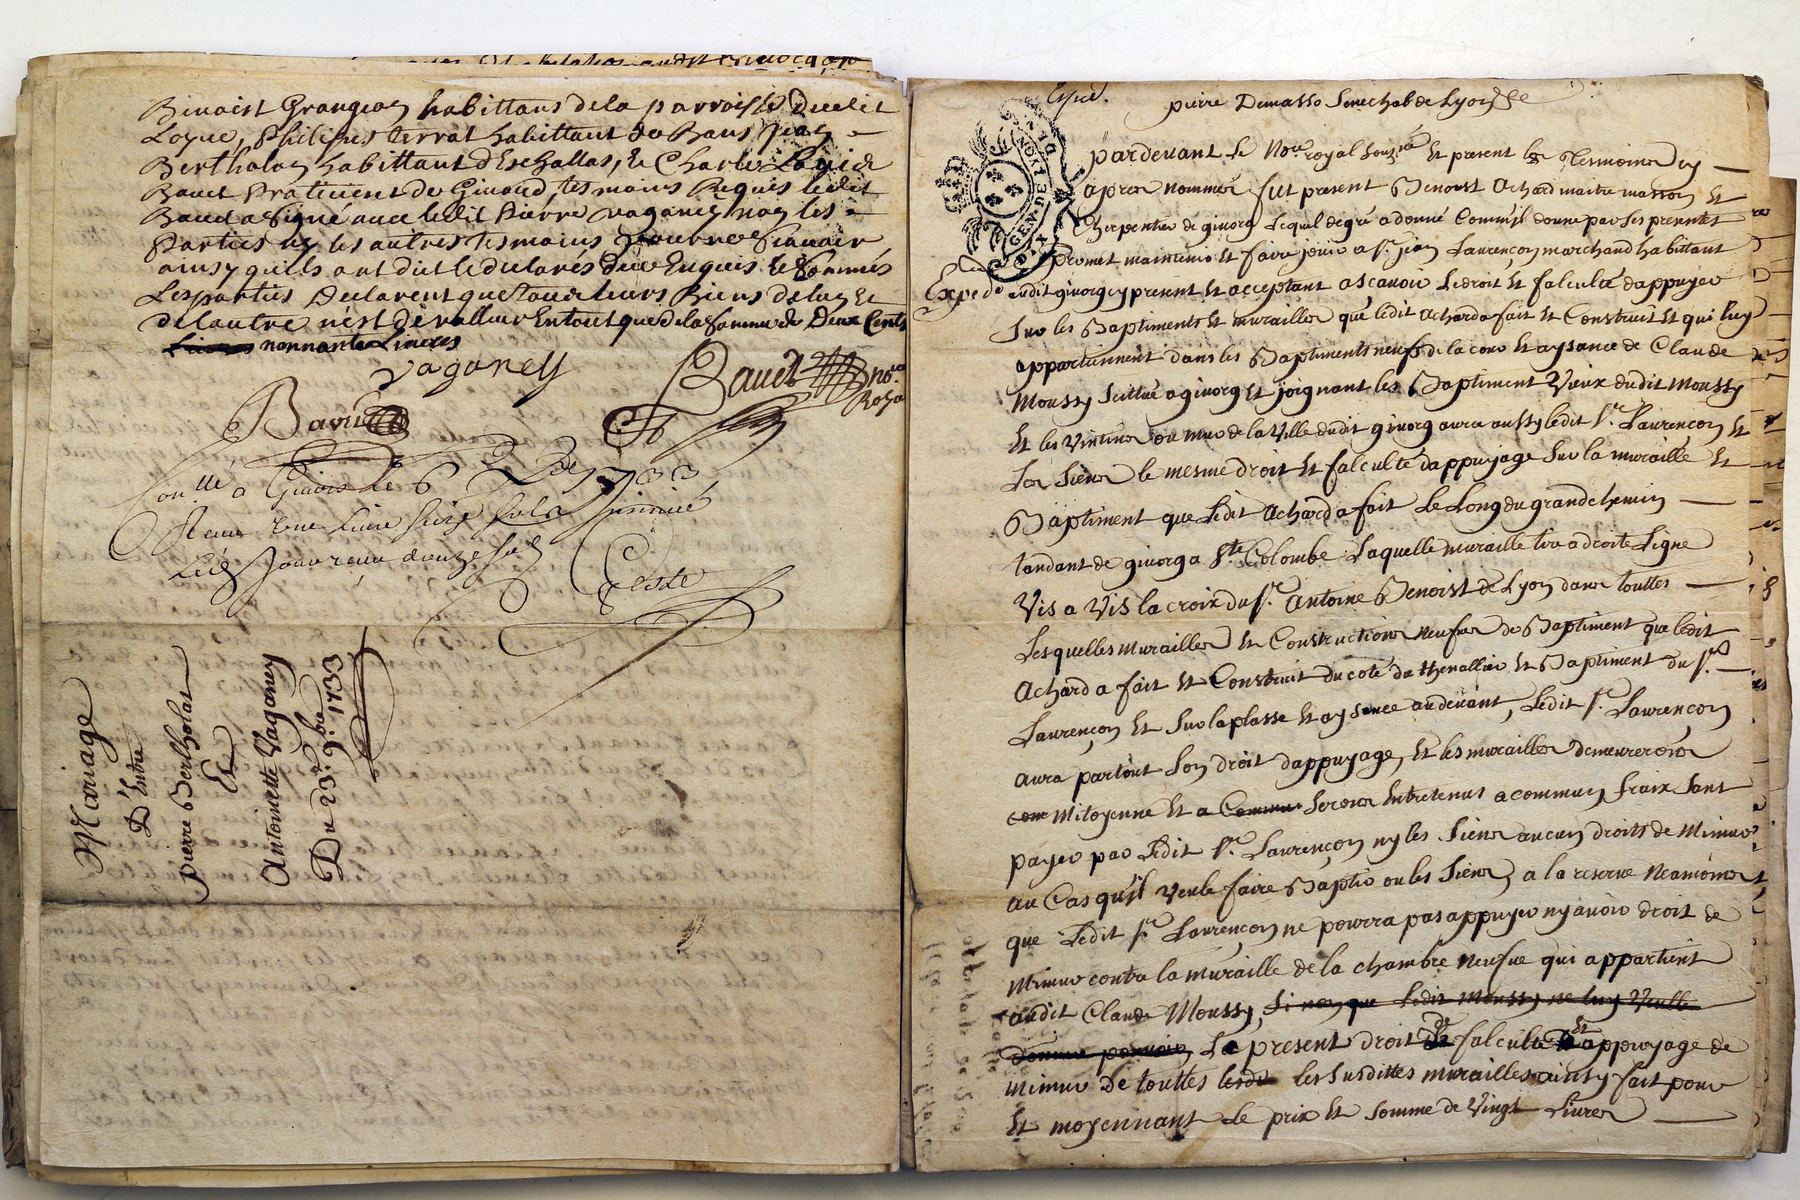 Benoist Grangeon habittans de la parroisse dudit
Loyre, Philipes Terrat habittant de Bans Jean
Bertholon habittant d'Eschallas, Et Charle
Bauet praticient de Giuord tesmoins Requis ledit
Baud a signé auec ledit Pierre vaganey non les
Parties ny les autres tesmoins pour ne sçauoir
ainsy quils ont dict et declarés de ce Enquis Et sommés
Les parties Declarent que tous leurs Biens de lun Et
de lautre n'est de valleur En tout que de la somme de Deux Cents
nonnante Liures
vaganey
Bauet no.re
Roya
Bauet
Con.llé a Giuors le 6 1733
Receu une Liure seize sols
Led. Jour receu douze sols
Teste
Mariage
D'Entre
pierre Bertholat
Et
Antoinette Vaganey
Du 23.e 9.bre 1733
Espic.
pierre Dumasso Senechal de Lyon
GEN. DE LYON
pardeuant Le No.re royal souz.né Et present les tesmoins cy
apres nommés fut present Benoist Achard maitre masson Et
Cherpentier de giuorg Lequel de gré a donné Comm'il donne par ses presentes
Promet maintenir Et faire jouir a s.r jean Laurençon marchand habittant
Expedé
audit giuorg cy present Et acceptant ascauoir Le droit Et falculté dappuyer
sur les Baptiments Et murailles que ledit Achard a fait Et Construit Et qui luy
appartiennent dans les Baptiments neufs de la cour Et aysance de Claude
Moussy scittué a giuorg Et joignant les Baptiment Vieux dudit Moussy
Et les Vintins ou mur de la Ville dudit giuorg aura aussy ledit s.r Laurençon Et
Les siens le mesme droit Et falculté dappuyage sur la muraille Et
Baptiment que Ledit Achard a fait Le Long du grand chemin
tandant de giuorg a s.te Colombe Laquelle muraille tire a droite Ligne
Vis a Vis la croix du s.r Antoine Benoist de Lyon dans touttes
Lesquelles murailles Et Constructions neufues de Baptiment que ledit
Achard a fait Et Construit du coté du thenallier Et Baptiment du s.r
Laurençon Et sur la plasse Et aysance au deuant, Ledit s.r Laurençon
aura partout son droit dappuyage, Et les murailles demeureront
mitoyenne Et a Commu seront Entretenus a commun fraix sans
payer par Ledit s.r Laurençon ny les siens aucun droits de Mimur
au Cas qu'il Veule faire Baptir ou les siens, a la reserue Neamoins
que Ledit s.r Laurençon ne pourra pas appuyer ny auoir droit de
Mimur contre la muraille de la chambre neufue qui appartient
audit Claude Moussy, si non que Ledit Moussy ne luy Veulle
donner pouuoir Le present droit de falculté Et appuyage de
Mimur de touttes les susdittes murailles ainsy fait pour
Et moyennant Le prix Et somme de Vingt Liures